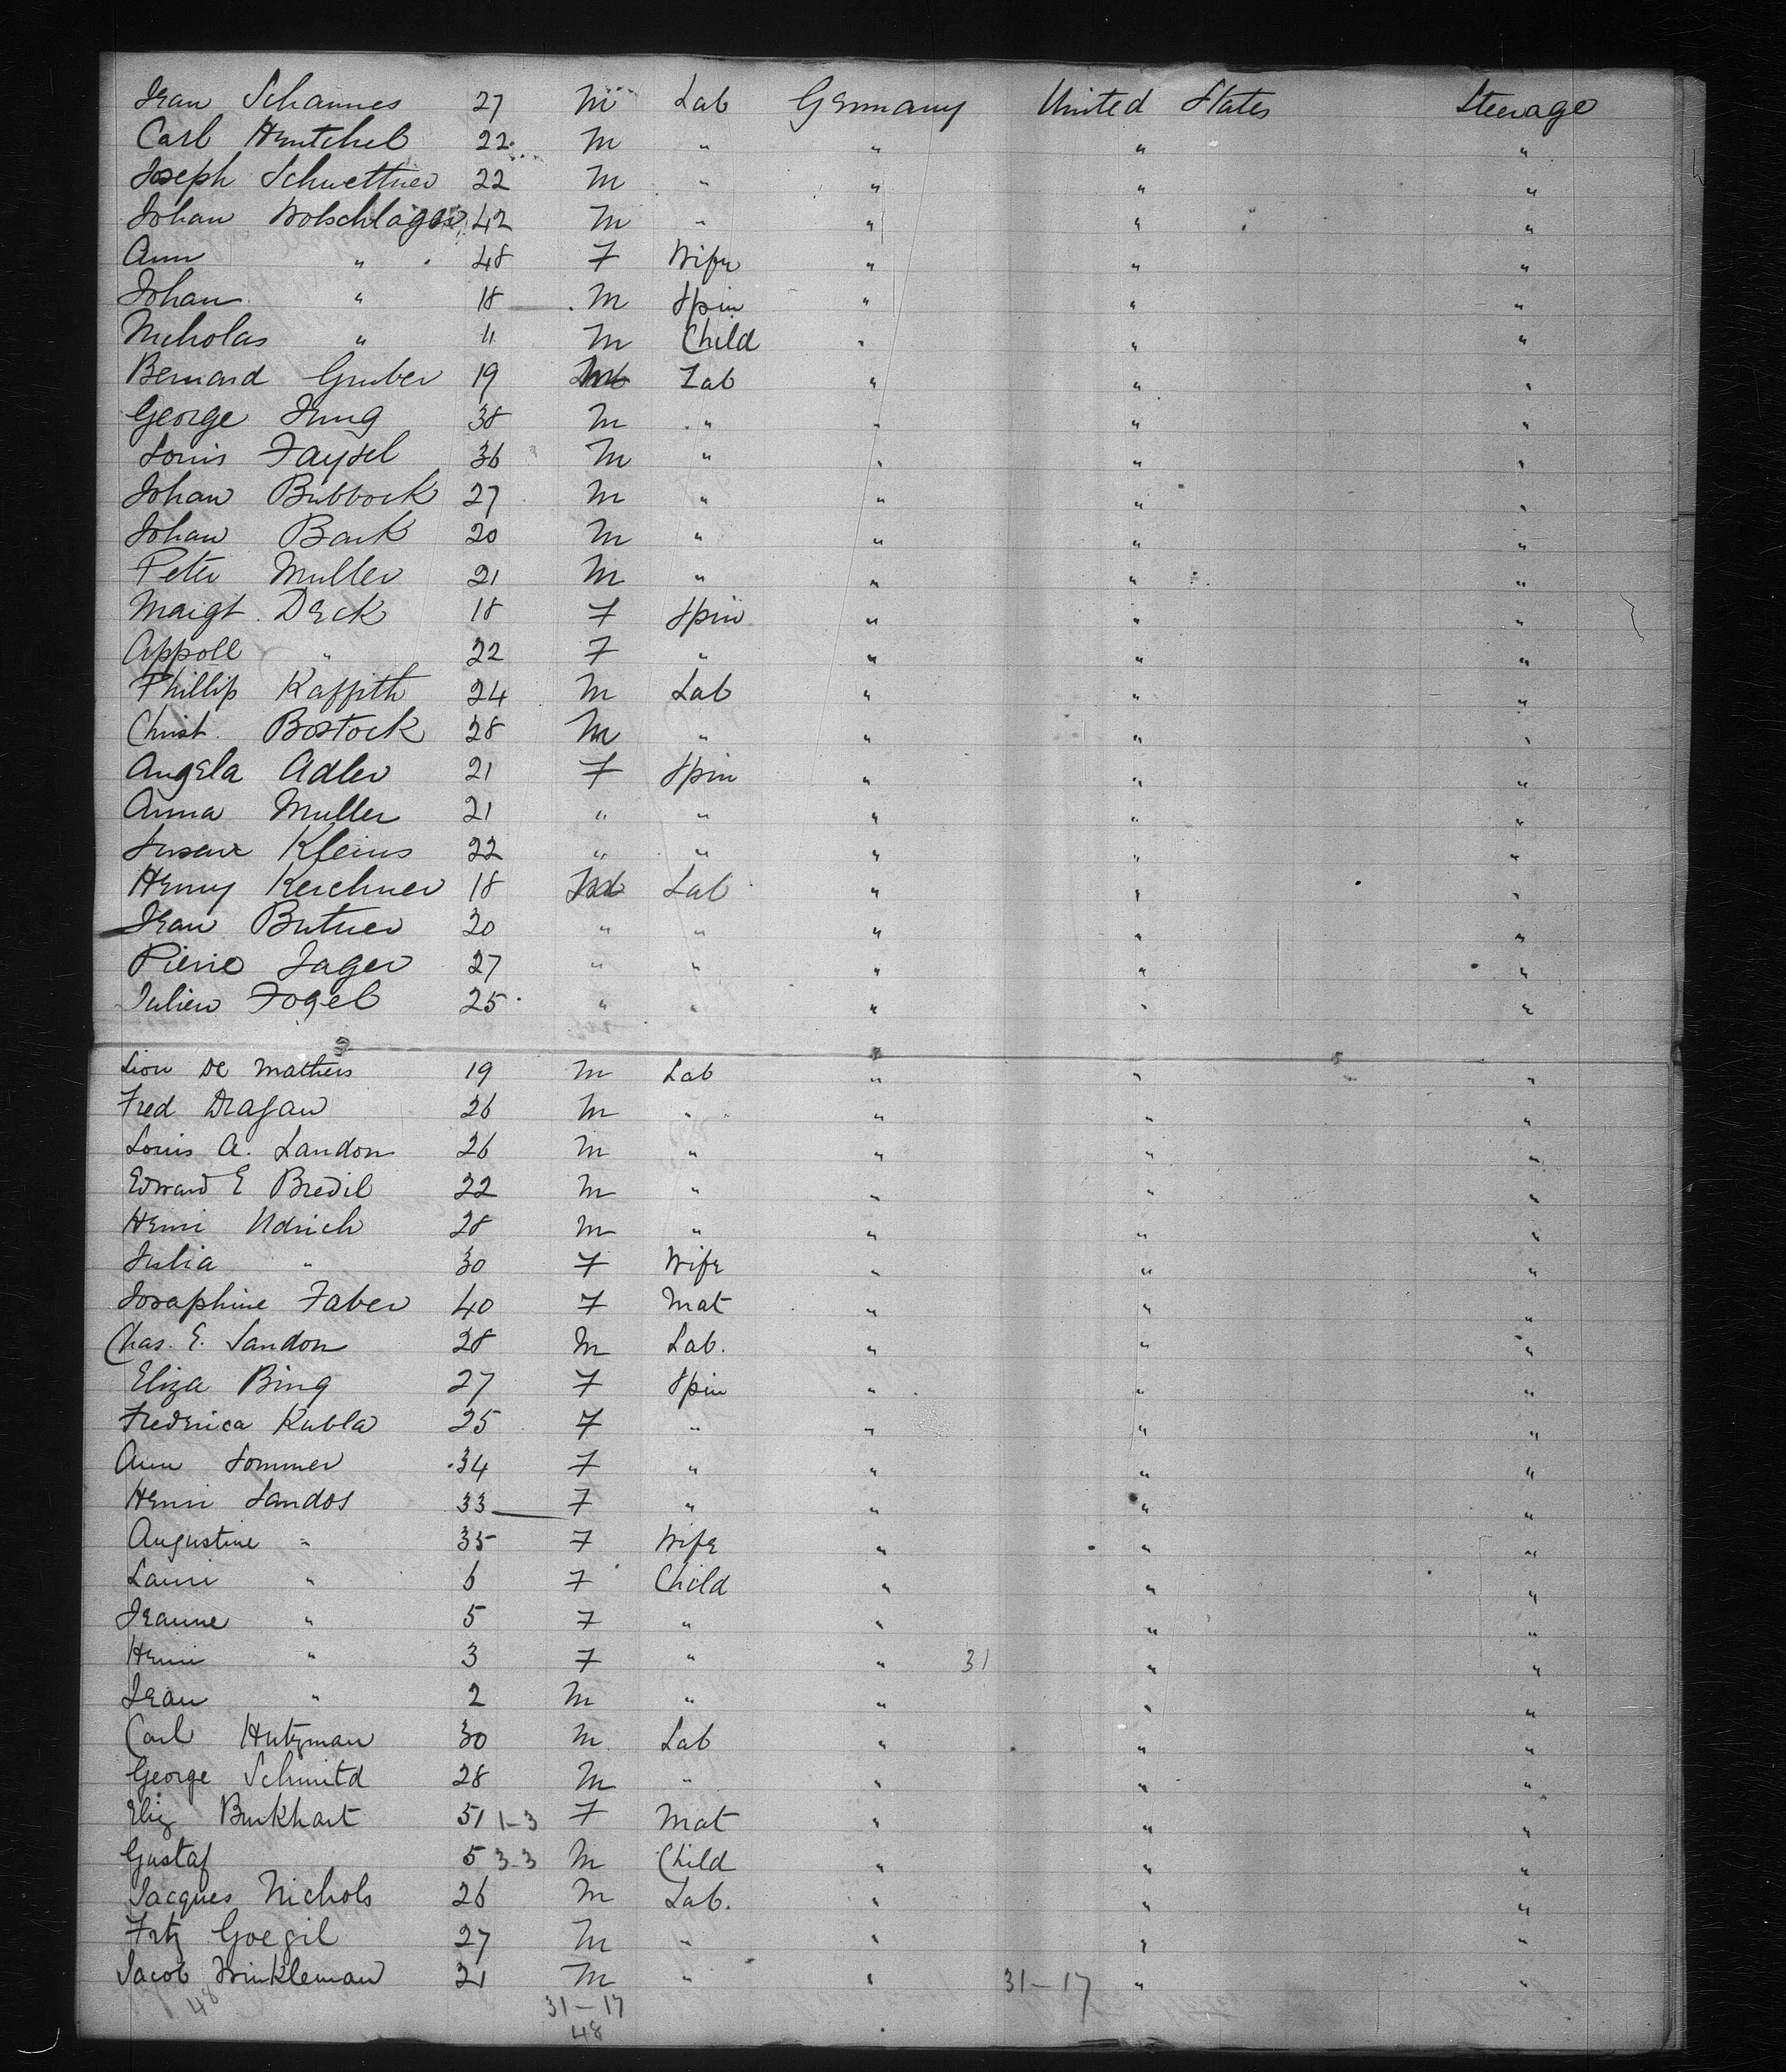 Jean Schannes 27 M Lab Germany United States Steerage
Carl Hentchel 22 M " " " "
Joseph Schuettner 22 M " " " "
Johan Wolschlager 42 M " " " "
Ann " 48 F Wife " " "
Johan " 18 M Spin " " "
Nicholas " 11 M Child " " "
Bernard Gruber 19 M Lab " " "
George Jung 38 M " " " "
Louis Faysel 36 M " " " "
Johan Bubbock 27 M " " " "
Johan Bark 20 M " " " "
Peter Muller 21 M " " " "
Margt. Deck 18 F Spin " " "
Appoll " 22 F " " " "
Phillip Kaffith 24 M Lab " " "
Christ. Bostock 28 M " " " "
Angela Adler 21 F Spin " " "
Anna Muller 21 " " " " "
Susan Kleins 22 " " " " "
Henry Kerchner 18 Lab " " "
Jean Butner 20 " " " " "
Pierre Jager 27 " " " " "
Julien Fogel 25 " " " " "
Lion De Mathers 19 M Lab " " "
Fred Dragan 26 M " " " "
Louis A. Landon 26 M " " " "
Edward E Bredil 22 M " " " "
Henri Udrich 28 M " " " "
Julia " 30 F Wife " " "
Josephine Faber 40 F Mat " " "
Chas. E. Landon 28 M Lab. " " "
Eliza Bing 27 F Spin " " "
Frederica Kubla 25 F " " " "
Ann Sommer 34 F " " " "
Henri Landos 33 F " " " "
Augustine " 35 F Wife " " "
" 6 F Child " " "
Jeanne " 5 F " " " "
Henri " 3 F " " 31 " "
Jean " 2 M " " " "
Carl Hutzman 30 M Lab " " "
George Schmitd 28 M " " " "
Eliz Burkhart 51 1-3 F Mat " " "
Gustaf 5 3-3 M Child " " "
Jacques Nichols 26 M Lab. " " "
Fritz Goegil 27 M " " " "
Jacob Winkleman 21 M " " 31-17 " "
48 31-17
48